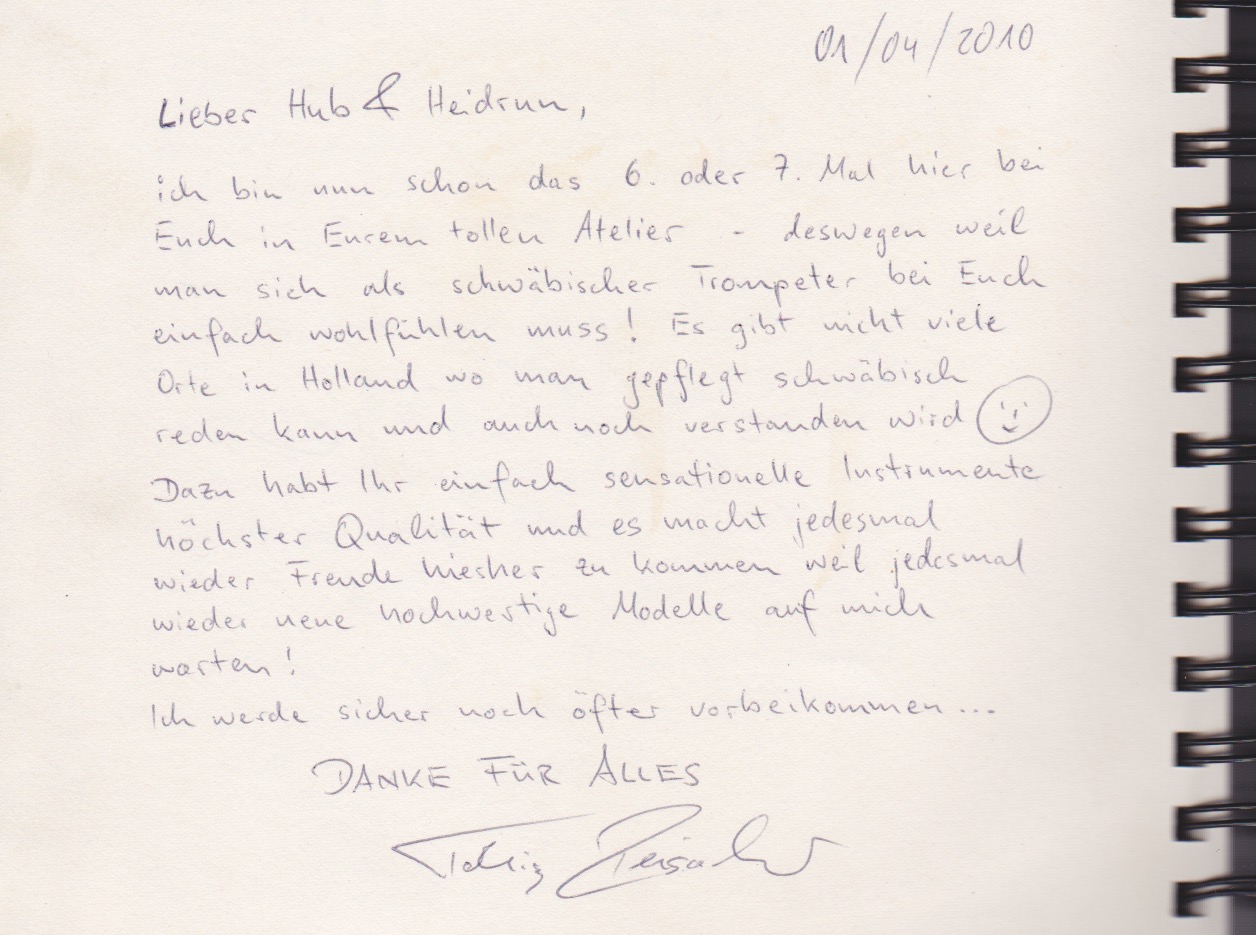 01/04/2010
Lieber Hub & Heidrun,
ich bin nun schon das 6. oder 7. Mal hier bei
Euch in Eurem tollen Atelier - deswegen weil
man sich als schwäbischer Trompeter bei Euch
einfach wohlfühlen muss! Es gibt nicht viele
Orte in Holland wo man gepflegt schwäbisch
reden kann und auch noch verstanden wird
Dazu habt Ihr einfach sensationelle Instrumente
höchster Qualität und es macht jedesmal
wieder Freude hierher zu kommen weil jedesmal
wieder neue hochwertige Modelle auf mich
warten!
Ich werde sicher noch öfter vorbeikommen...
DANKE FÜR ALLES